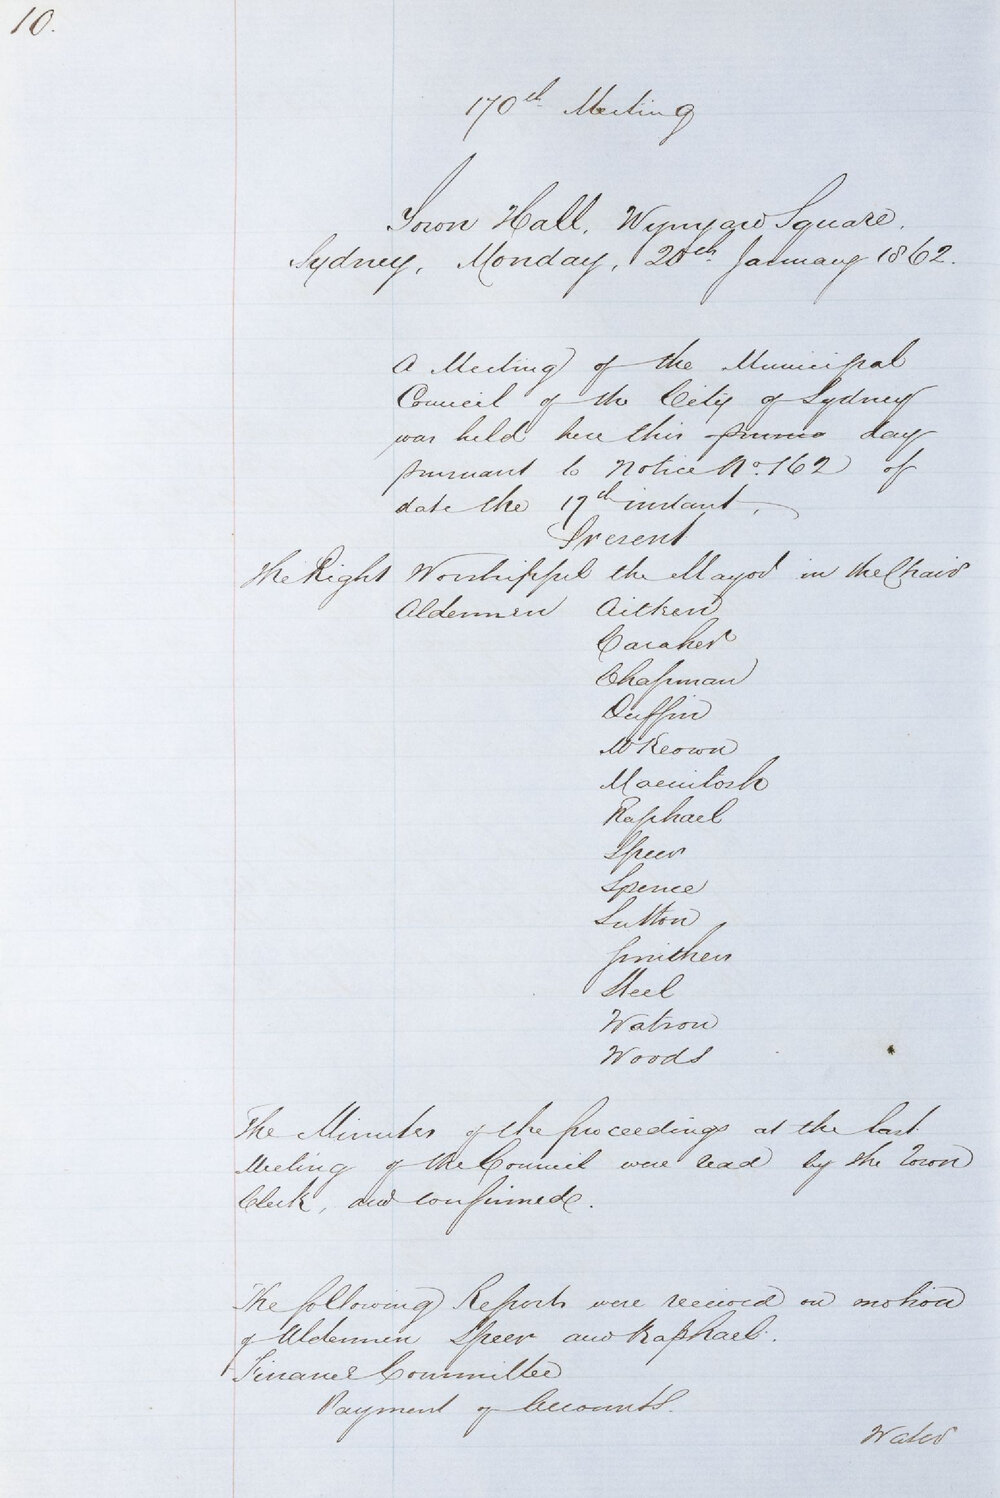 10.
170th Meeting
Town Hall, Wynyard Square.
Sydney, Monday, 20th January 1862.
A Meeting of the Municipal
Council of the City of Sydney
was held here this day
pursuant to Notice No. 162 of
date the 17th instant.
Present
The Right Worshipful the Mayor in the Chair
Aldermen Aitken
Caraher
Chapman
Duffin
McKeown
Macintosh
Raphael
Speer
Spence
Sutton
Smithers
Steel
Watson
Woods
The Minutes of the proceedings at the last
Meeting of the Council were read by the Town
Clerk, and confirmed.
The following Reports were received on motion
of Aldermen Speer and Raphael.
Finance Committee
Payment of Accounts.
Water